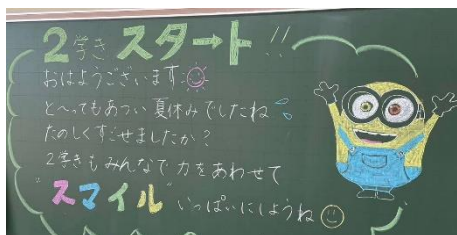 2学き スタート!!
おはようございます
と〜ってもあつい夏休みでしたね
たのしくすごせましたか?
2学きもみんなで力をあわせて
"スマイル"いっぱいにしようね